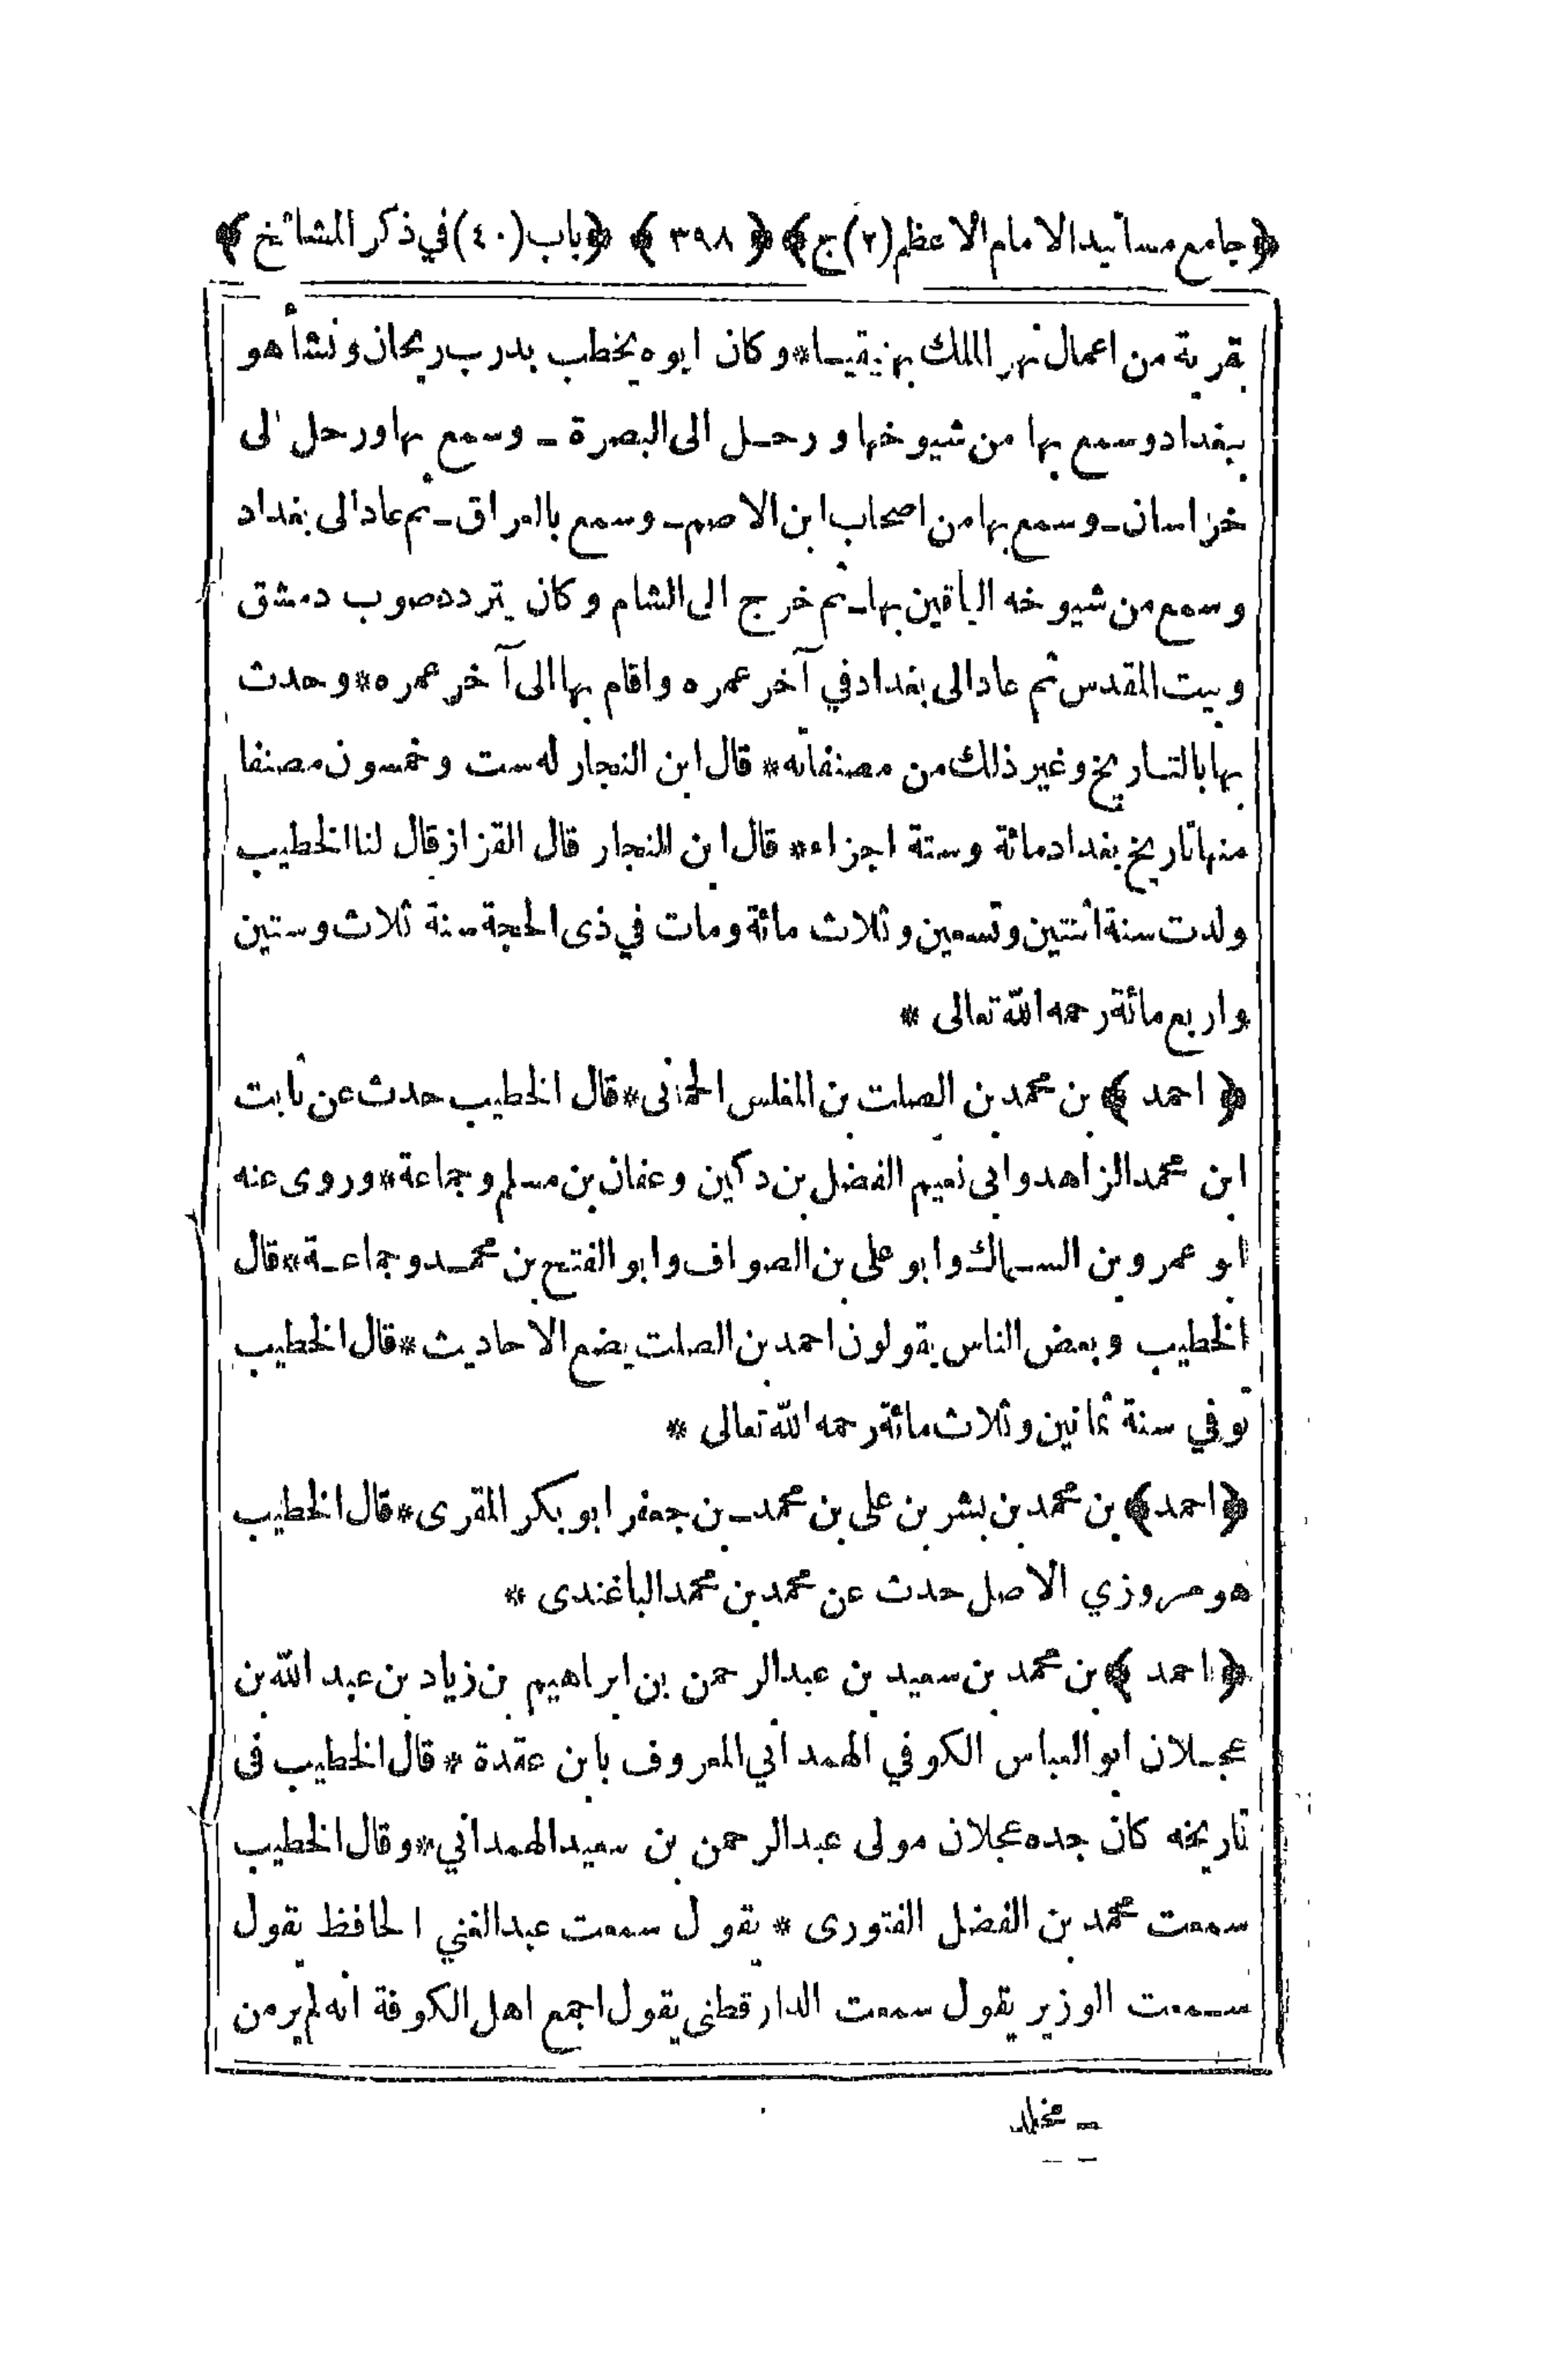 ﴿جامع مسانيد الامام الاعظم (٢) ج﴾ ﴿ ٣٩٨ ﴾ ﴿باب (٤٠) في ذكر المشائخ﴾
بقرية من اعمال نهر الملك بهنيقيا * وكان ابوه يخطب بدرب ريحان ونشأ هو
ببغداد وسمع بها من شيوخها ورحل الى البصرة ــ وسمع بها ورحل الى
خراسان ــ وسمع بها من اصحاب ابن الاصم ــ وسمع بالعراق ــ ثم عاد الى بغداد
وسمع من شيوخه الباقين بها ــ ثم خرج الى الشام وكان يتردد صوب دمشق
وبيت المقدس ثم عاد الى بغداد في آخر عمره واقام بها الى آخر عمره * وحدث
بها بالتاريخ وغير ذلك من مصنفاته * قال ابن النجار له ست وخمسون مصنفا
منها تاريخ بغداد مائة وستة اجزاء * قال ابن النجار قال القزاز قال لنا الخطيب
ولدت سنة اثنتين وتسعين وثلاث مائة ومات في ذى الحجة سنة ثلاث وستين
واربع مائة رحمه الله تعالى *
﴿ احمد ﴾ بن محمد بن الصلت بن المغلس الحمانى * قال الخطيب حدث عن ثابت
ابن محمد الزاهد وابى نعيم الفضل بن دكين وعفان بن مسلم وجماعة * وروى عنه
ابو عمرو بن السماك وابو على بن الصواف وابو الفتح بن محمد وجماعة * قال
الخطيب وبعض الناس يقولون احمد بن الصلت يضع الاحاديث * قال الخطيب
توفي سنة ثمانين وثلاث مائة رحمه الله تعالى *
﴿احمد﴾ بن محمد بن بشر بن على بن محمد ــ بن جعفر ابو بكر المقرى * قال الخطيب
هو مروزي الاصل حدث عن محمد بن محمد الباغندى *
﴿احمد ﴾ بن محمد بن سعيد بن عبد الرحمن بن ابراهيم بن زياد بن عبد الله بن
عجلان ابو العباس الكوفي الهمداني المعروف بابن عقدة * قال الخطيب فى
تاريخه كان جده عجلان مولى عبد الرحمن بن سعيد الهمداني * وقال الخطيب
سمعت محمد بن الفضل الفتورى * يقول سمعت عبد الغني الحافظ يقول
سمعت الوزير يقول سمعت الدارقطنى يقول اجمع اهل الكوفة انه لم ير من